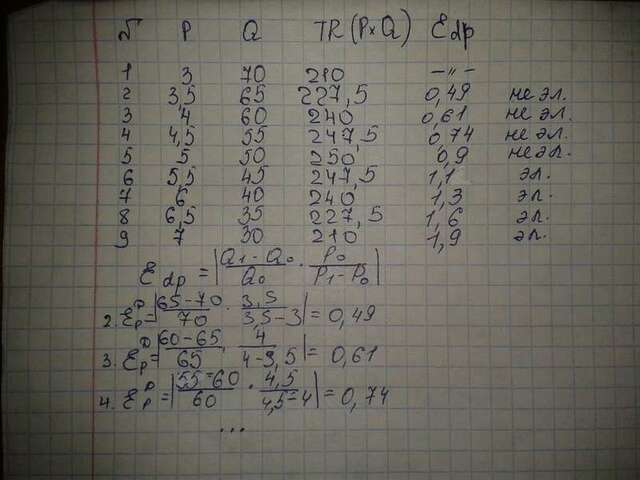 № P Q TR(P×Q) Edp
1 3 70 210 -"-
2 3,5 65 227,5 0,49 не эл.
3 4 60 240 0,61 не эл.
4 4,5 55 247,5 0,74 не эл.
5 5 50 250 0,9 не эл.
6 5,5 45 247,5 1,1 эл.
7 6 40 240 1,3 эл.
8 6,5 35 227,5 1,6 эл.
9 7 30 210 1,9 эл.
Edp = |Q1-Q0/Q0 · P0/P1-P0|
2. E^D_p = |65-70/70 · 3,5/3,5-3| = 0,49
3. E^D_p = |60-65/65 · 4/4-3,5| = 0,61
4. E^D_p = |55-60/60 · 4,5/4,5-4| = 0,74
...